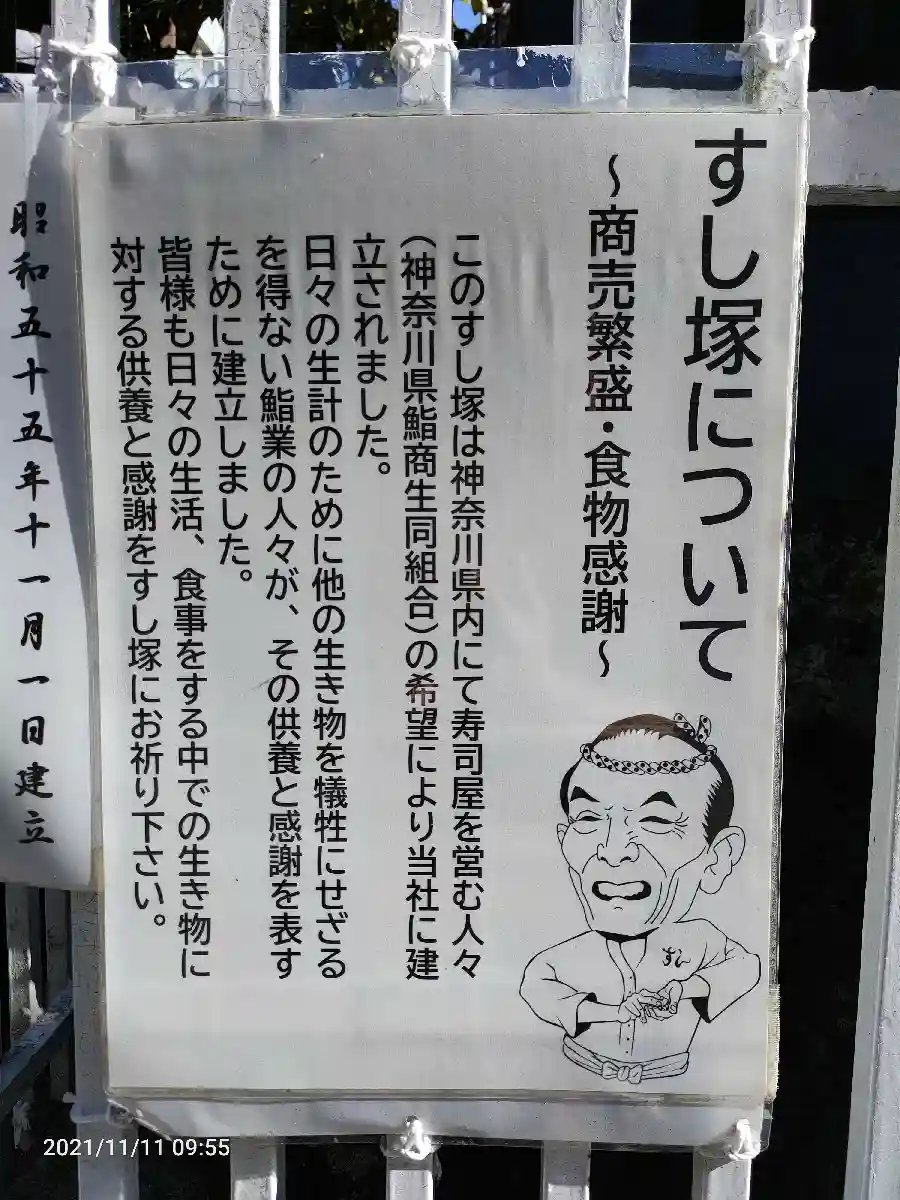 すし塚について
～商売繁盛・食物感謝～
このすし塚は神奈川県内にて寿司屋を営む人々
（神奈川県鮨商生同組合）の希望により当社に建
立されました。
日々の生計のために他の生き物を犠牲にせざる
を得ない鮨業の人々が、その供養と感謝を表す
ために建立しました。
皆様も日々の生活、食事をする中での生き物に
対する供養と感謝をすし塚にお祈り下さい。
すし
昭和五十五年十一月一日建立
2021/11/11 09:55